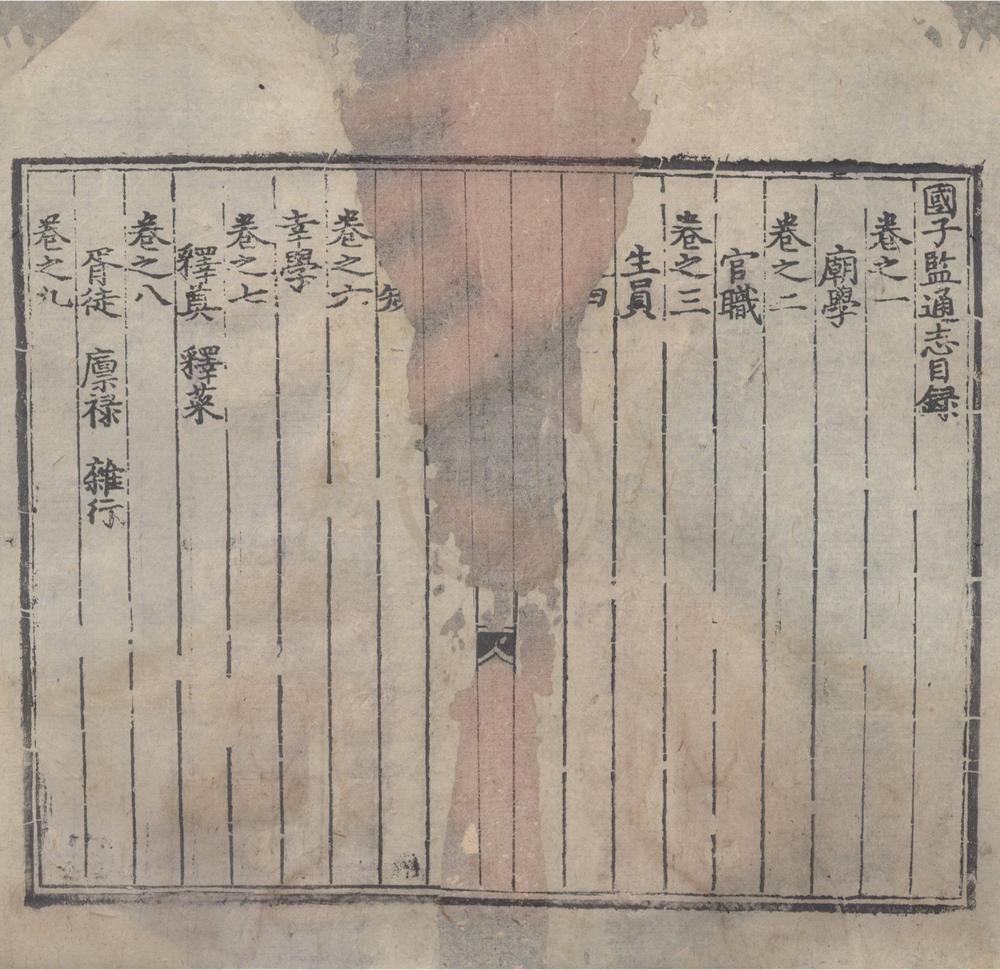 國子監通志目録
卷之一
廟學
卷之二
官職
卷之三
生員
卷之六
幸學
卷之七
釋奠 釋菜
卷之八
胥徒 廪禄 雜行
卷之九